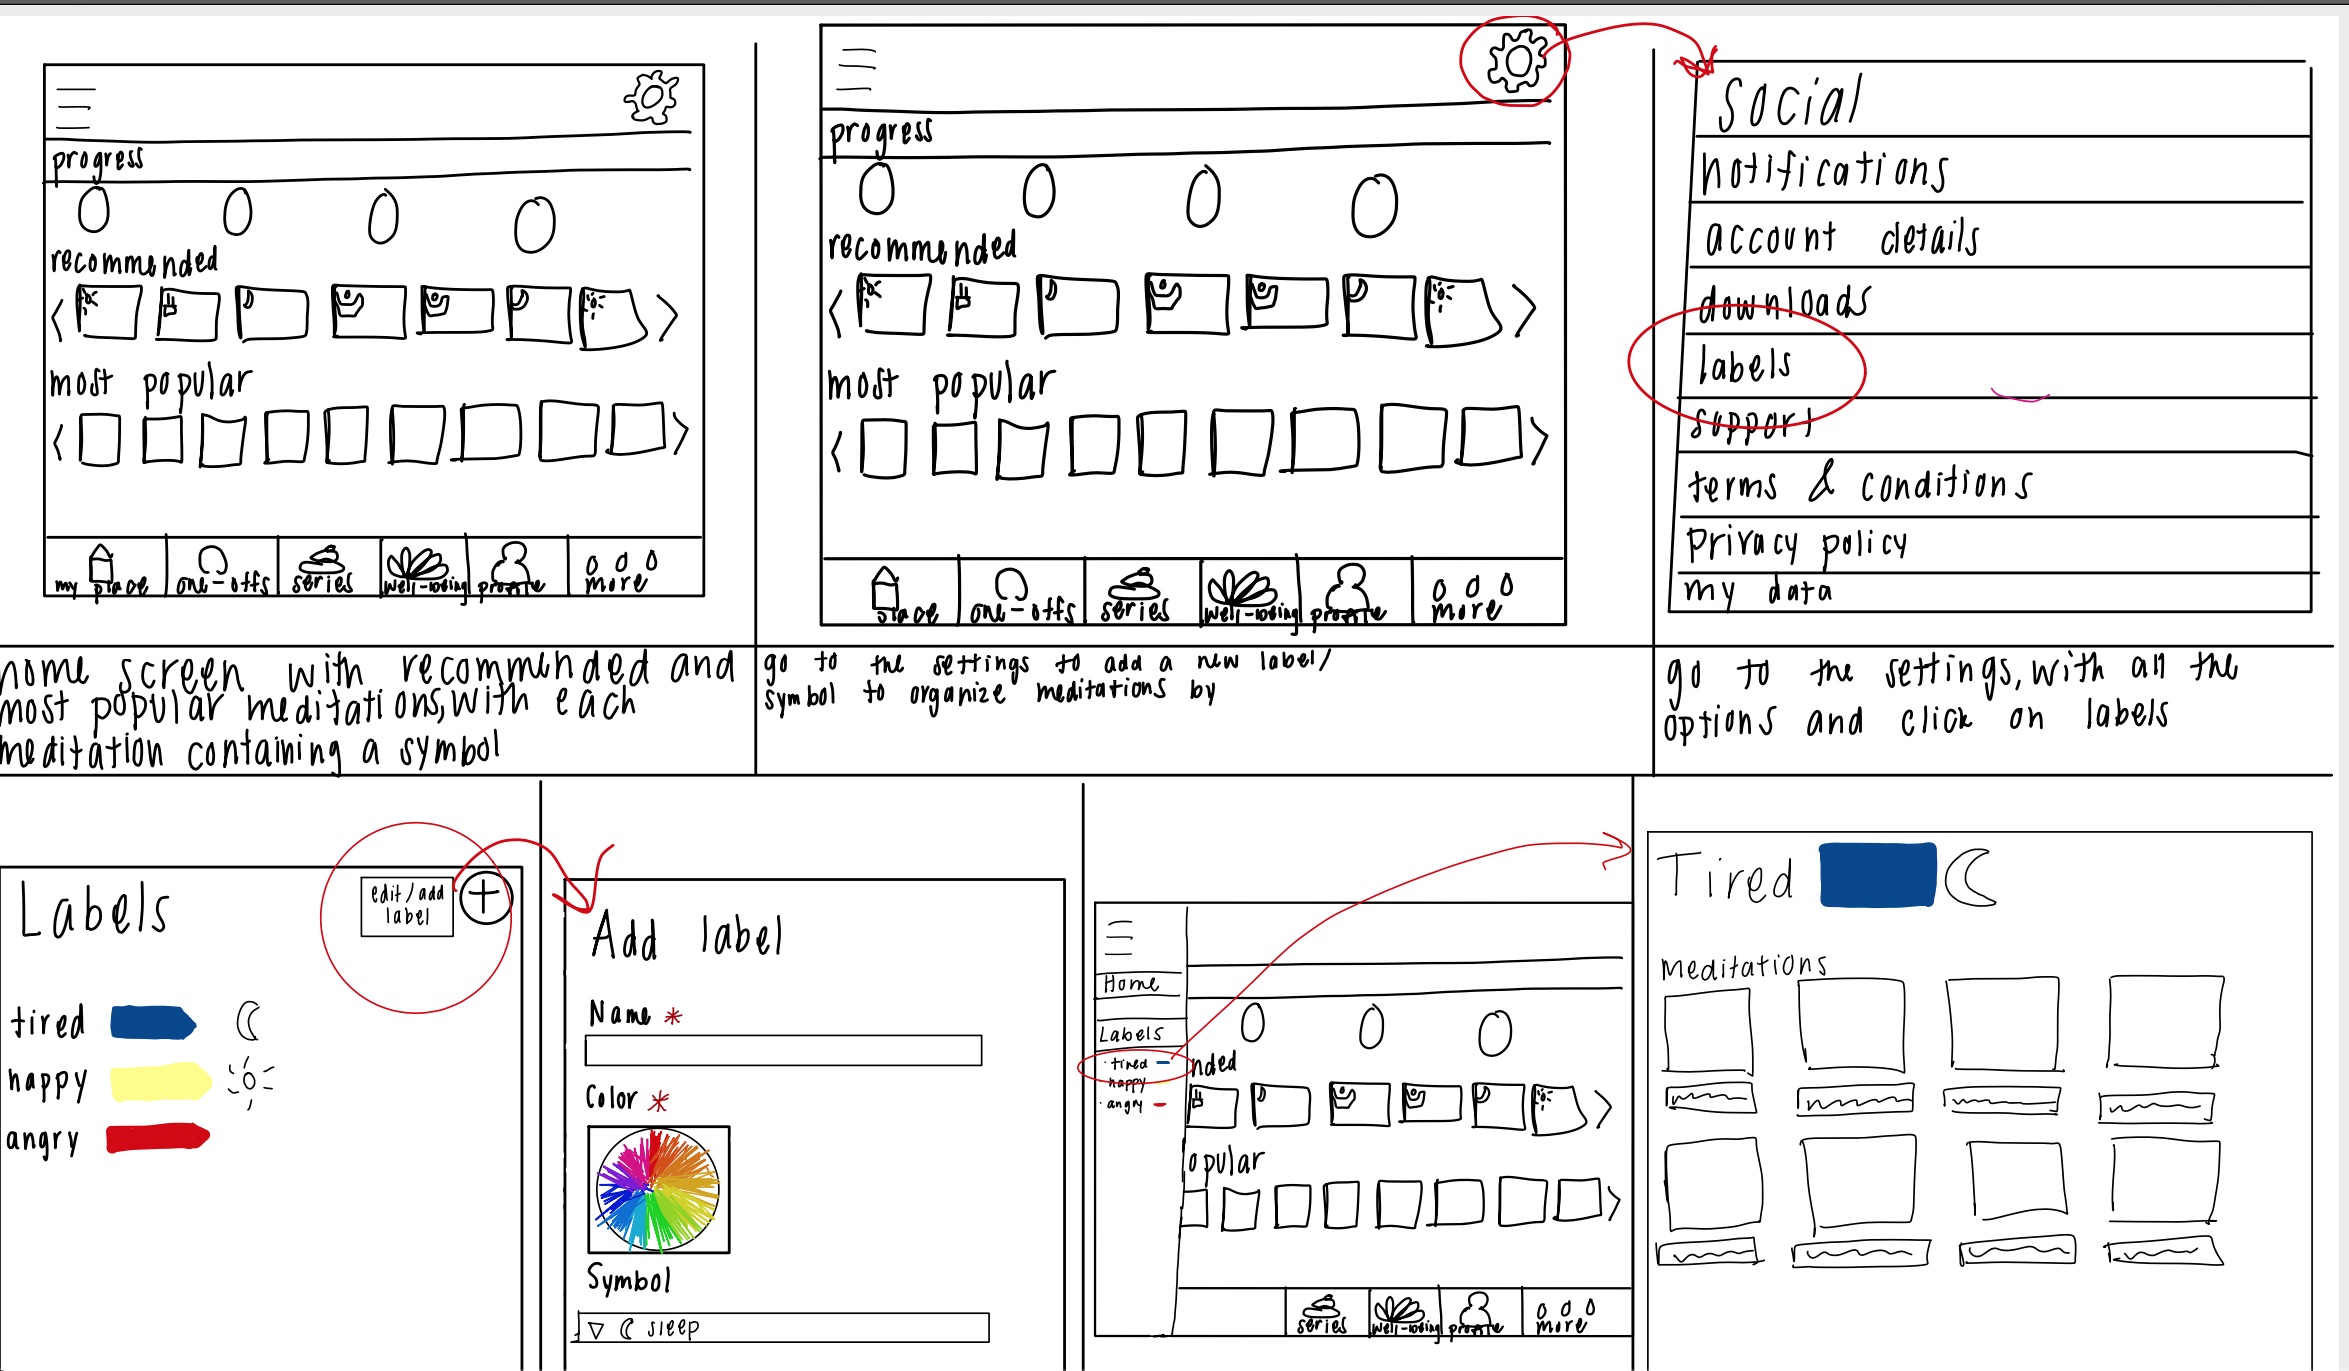 progress
recommended
most popular
my place
one-offs
series
well-being
profile
more
home screen with recommended and
most popular meditations, with each
meditation containing a symbol
progress
recommended
most popular
place
one-offs
series
well-being
profile
more
go to the settings to add a new label/
symbol to organize meditations by
social
notifications
account details
downloads
labels
support
terms & conditions
privacy policy
my data
go to the settings, with all the
options and click on labels
Labels
edit/add
label
tired
happy
angry
Add label
Name *
Color *
Symbol
sleep
Home
Labels
· tired
happy
· angry
nded
opular
series
well-being
profile
more
Tired
Meditations